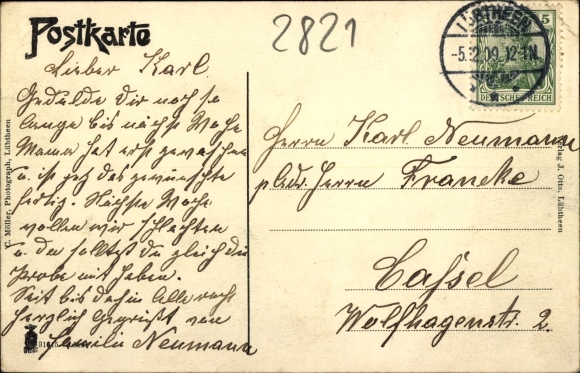 Postkarte
2821
LÜBTHEEN
-5.12.09.12-1N.
5
DEUTSCHES REICH
Lieber Karl
Gedulde dir noch so
lange bis nächs Woche
Mama hat erst gewaschen
u. ist jetz das gewünschte
fertig. Nächste Woche
wollen wir schlachten
u. da solltest du gleich die
Probe mit haben.
Seit bis dahin Alle rech
herzlich Gegrüßt von
Familie Neumann
Herrn Karl Neumann
p. Adr. Herrn Francke
Cassel
Wolfhagenstr. 2.
C. Möller, Photograph, Lübtheen
Verlag J. Otto, Lübtheen